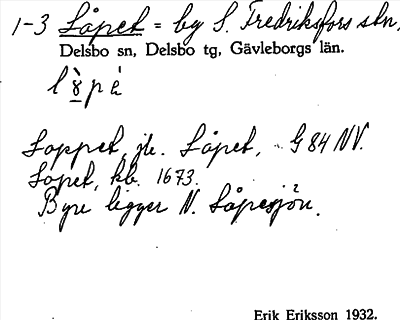 1-3 Låpet = by S. Fredriksfors stn,
Delsbo sn, Delsbo tg, Gävleborgs län.
Loppet, jle. Låpet, G 84 NV.
Lopet, kb. 1673.
Byn ligger N. Låpesjön.
Erik Eriksson 1932.